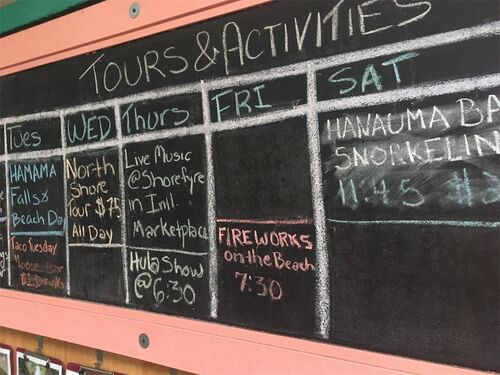 TOURS & ACTIVITIES
Tues
HAMAMA
Falls &
Beach Day
Taco Tuesday
Moose Bar
WED
North
Shore
Tour $75
All Day
Thurs
Live Music
@Shorefyre
in Intl.
Marketplace
Hula Show
@6:30
FRI
FIREWORKS
on the Beach
7:30
SAT
HANAUMA BA
SNORKELIN
11:45